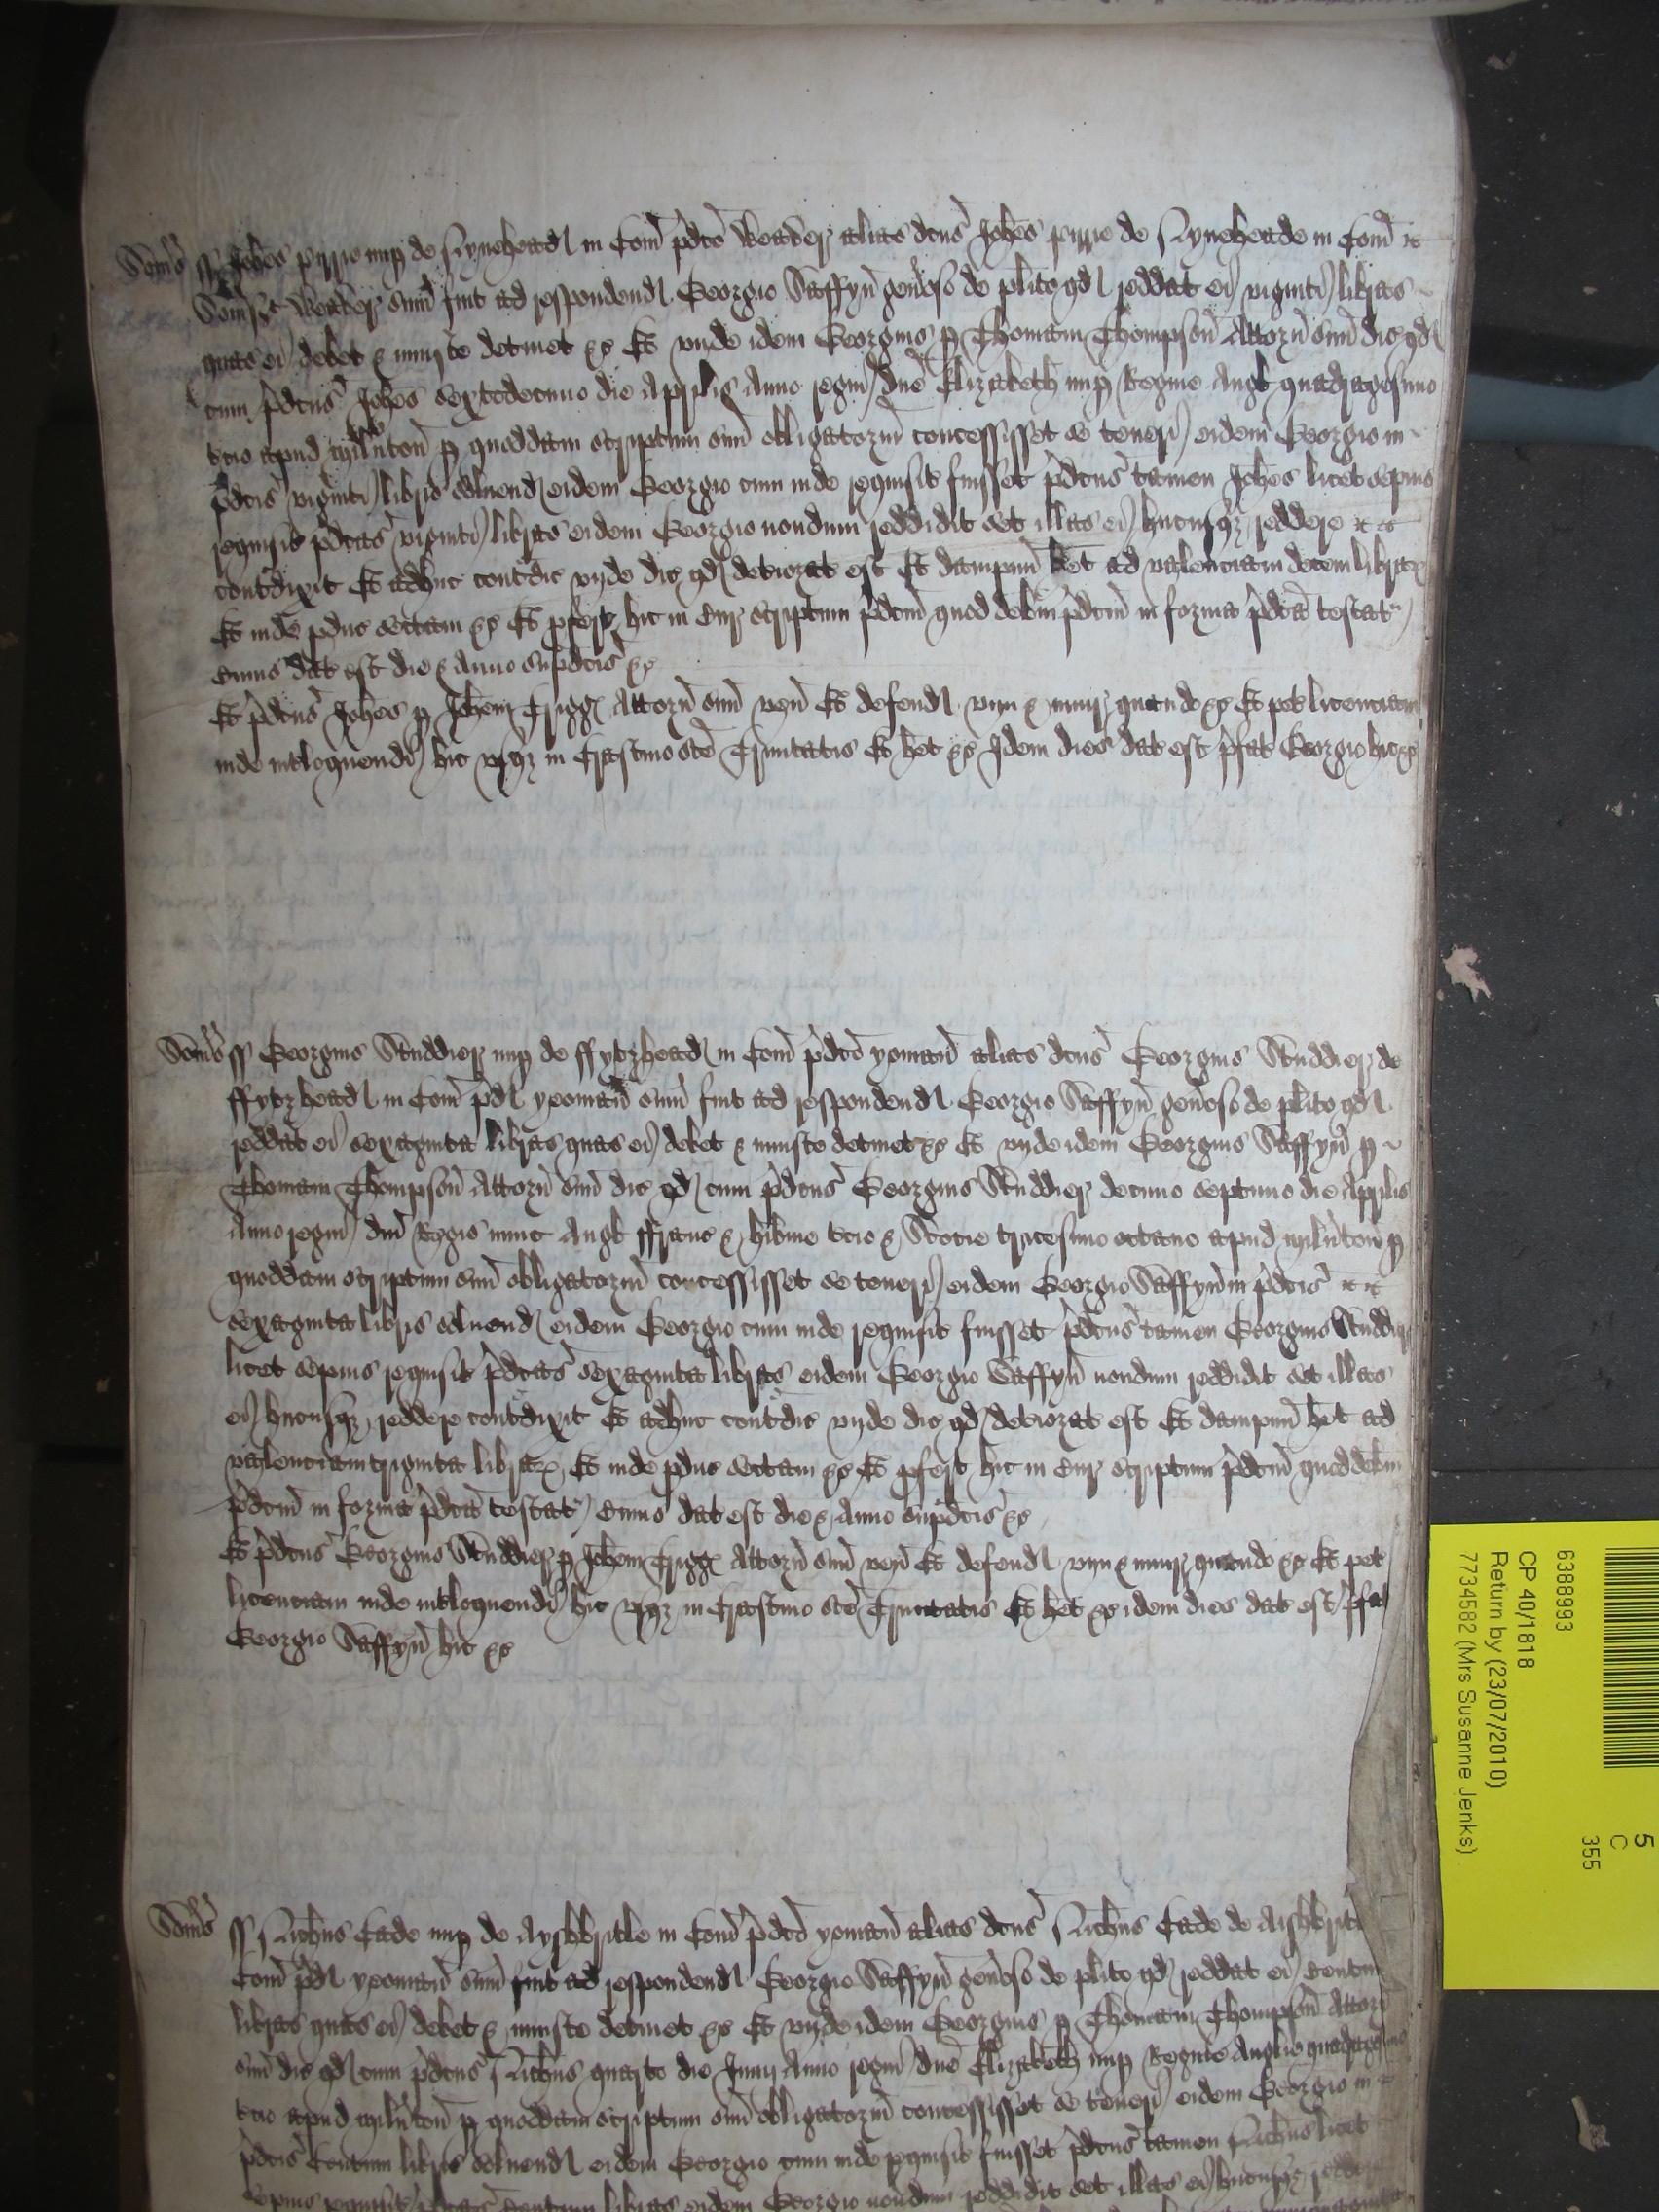 Som̃s ss Joh̃es pyne nup de Nyneheadd in Com̃ p̃dc̃o Weaver alias dc̃us Joh̃es pyne de Nyneheade in Com̃ &c
Som̃st Weaver sum̃ fuit ad respondend Georgio Saffyn gen̓oso de pl̃ito qd reddat ei viginti libras
quas ei debet & iniuste detinet &c Et unde idem Georgius p Thomam Thompson Attorñ suũ dic̃ qd
cum p̃dc̃us Joh̃es sextodecimo die Aprilis Anno regni Dñe Elizabeth nup Regine Angl quadragesimo
t̃cio apud Milṽton p quoddam scriptum suũ obligatoriũ concessisset se teneri eidem Georgio in
p̃dc̃is viginti libris solvend eidem Georgio cum inde requisit fuisset p̃dc̃us tamen Joh̃es licet sepius
requisit p̃dc̃as viginti libras eidem Georgio nondum reddidit set illas ei hucusqz reddere &c &c
contr̃dixit Et adhuc contr̃dic̃ unde dic̃ qd det̓iorat est Et dampnũ h̃et ad valenciam decem librar
Et inde pduc̃ sectam &c Et pfert hic in Cur̃ scriptum p̃dc̃m quod debm̃ p̃dc̃m in forma p̃dc̃a testat
Cuius dat est die & Anno sup̃dc̃is &c
Et p̃dc̃us Joh̃es p Joh̃em Trigg Attorñ suũ veñ Et defend vim & iniur̃ quando &c Et pet licenciam
inde int̓loquendi hic usqz in Crastino sc̃e Trinitatis Et h̃et &c Idem dies dat est p̃fat Georgio hic &c
Som̃s ss Georgius Studdier nup de ffytzhead in Com̃ p̃dc̃o yoman alias dc̃us Georgius Studdier de
ffytzhead in Com̃ p̃d yeoman sum̃ fuit ad respondend Georgio Saffyn gen̓oso de pl̃ito qd
reddat ei sexaginta libras quas ei debet & iniuste detinet &c Et unde idem Georgius Saffyn p
Thomam Thompson Attorñ suũ dic̃ qd cum p̃dc̃us Georgius Studdier decimo septimo die Aprilis
Anno regni Dñi Regis nunc Angl ffranc̃ & Hib̃nie t̃cio & Scotie tricesimo octavo apud Milṽton p
quoddam scriptum suũ obligatoriũ concessisset se teneri eidem Georgio Saffyn in p̃dc̃is &c &c
sexaginta libris solvend eidem Georgio cum inde requisit fuisset p̃dc̃us tamen Georgius Studdier
licet sepius requisit p̃dc̃as sexaginta libras eidem Georgio Saffyn nondum reddidit set illas
ei hucusqz reddere contr̃dixit Et adhuc contr̃dic̃ unde dic̃ qd det̓iorat est Et dampnũ h̃et ad
valenciam triginta librar Et inde pduc̃ sectam &c Et pfert hic in Cur̃ scriptum p̃dc̃m quod debm̃
p̃dc̃m in forma p̃dc̃a testat Cuius dat est die & Anno sup̃dc̃is &c
Et p̃dc̃us Georgius Studdier p Joh̃em Trigg Attorñ suũ veñ Et defend vim & iniur̃ quando &c Et pet
licenciam inde int̓loquendi hic usqz in Crastino sc̃e Trinitatis Et h̃et &c idem dies dat est p̃fat
Georgio Saffyn hic &c
Som̃s ss Rich̃us Cade nup de Ayshbrittle in Com̃ p̃dc̃o yoman alias dc̃us Rich̃us Cade de Aishbritt
Com̃ p̃d yeoman sum̃ fuit ad respondend Georgio Saffyn gen̓oso de pl̃ito qd reddat ei Centum
libras quas ei debet & iniuste detinet &c Et unde idem Georgius p Thomam Thompson Attorñ
suũ dic̃ qd cum p̃dc̃us Rich̃us quarto die Junij Anno regni Dñe Elizabeth nup Regine Anglie quadragesimo
t̃cio apud Milṽton p quoddam scriptum suũ obligatoriũ concessisset se teneri eidem Georgio in
p̃dc̃is Centum libris solvend eidem Georgio cum inde requisit fuisset p̃dc̃us tamen Rich̃us licet
sepius requisit p̃dc̃as Centum libras eidem Georgio nondum reddidit set illas ei hucusqz reddere
6388993
CP 40/1818
Return by (23/07/2010)
7734582 (Mrs Susanne Jenks)
5
C
355